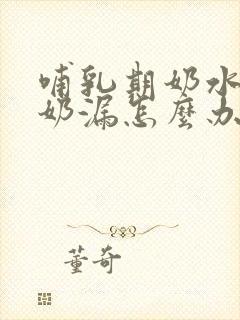 哺乳期奶水
奶漏怎麼办
董奇